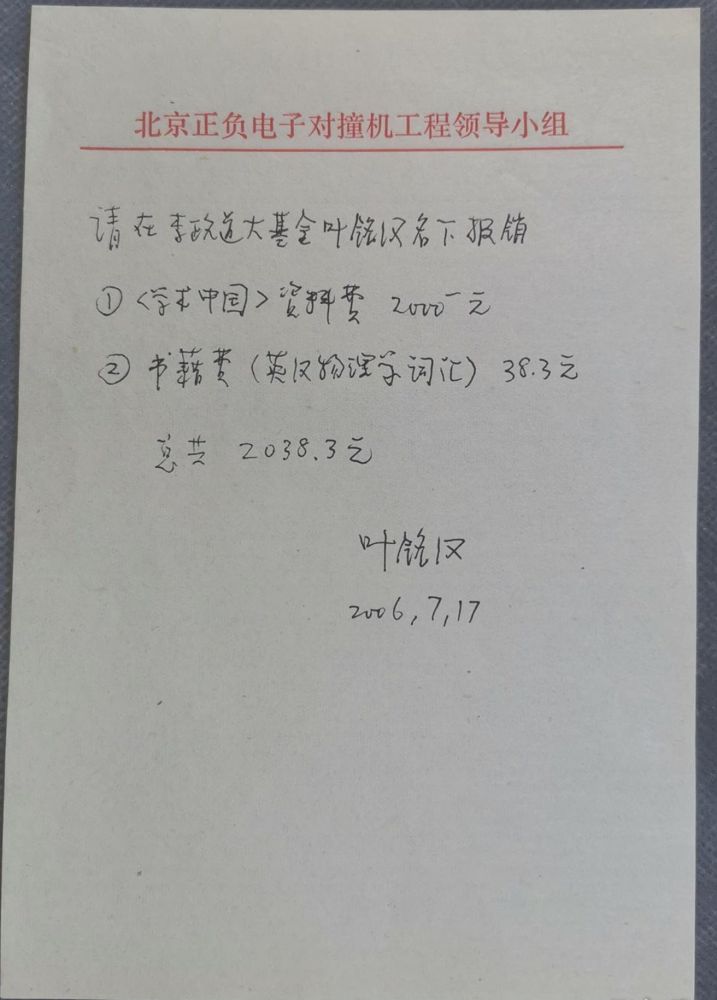 北京正负电子对撞机工程领导小组
请在李政道大基金叶铭汉名下报销
①<学术中国>资料费 2000一元
②书籍费(英汉物理学词汇) 38.3元
总共 2038.3元
叶铭汉
2006,7,17